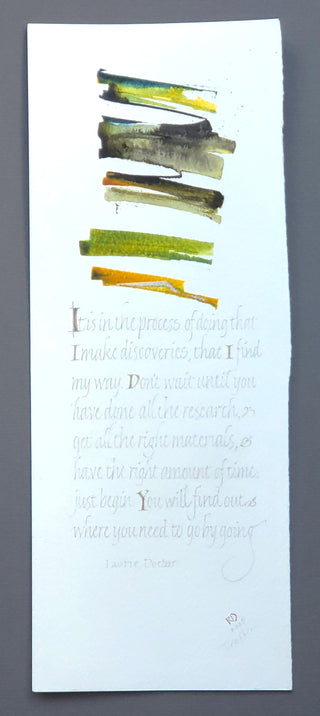 It is in the process of doing that
I make discoveries, that I find
my way. Don't wait until you
have done all the research,
get all the right materials,
have the right amount of time.
just begin. You will find out
where you need to go by going
Laurie Doctor